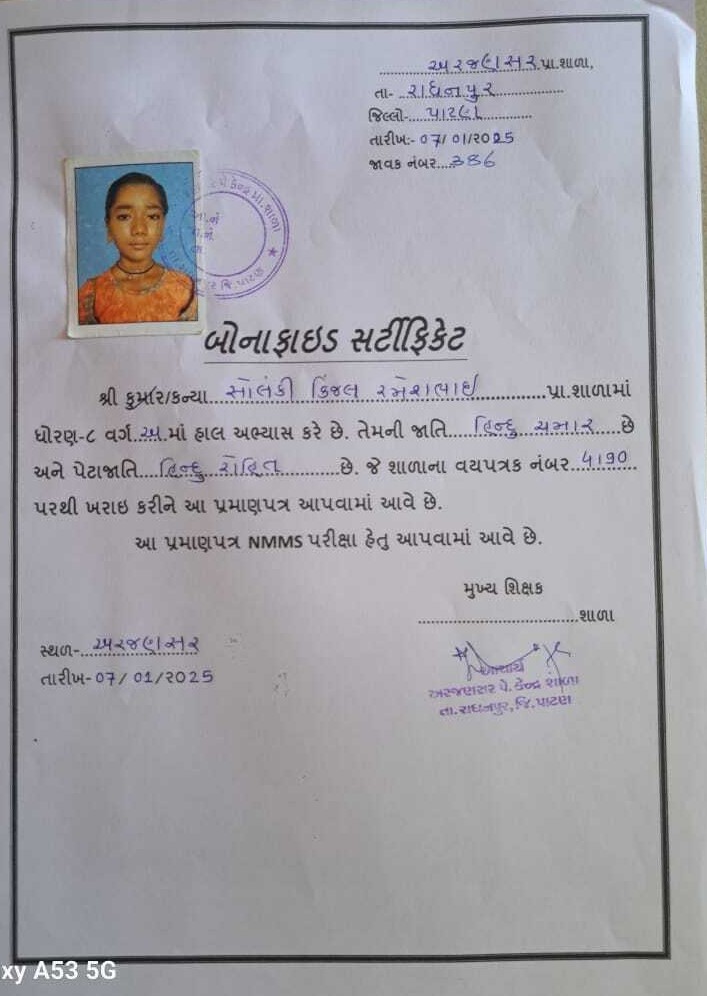 અરજણસર પ્રા.શાળા,
તા- રાધનપુર
જિલ્લો- પાટણ
તારીખ:- ૦7/૦1/૨૦૨5
જાવક નંબર....386
બોનાફાઇડ સર્ટીફિકેટ
શ્રી કુમાર/કન્યા સોલંકી કિંજલ રમેશભાઈ પ્રા.શાળામાં
ધોરણ-૮ વર્ગ.અ.માં હાલ અભ્યાસ કરે છે. તેમની જાતિ હિન્દુ ચમાર છે
અને પેટાજાતિ હિન્દુ રોહિત છે. જે શાળાના વયપત્રક નંબર 4190
પરથી ખરાઇ કરીને આ પ્રમાણપત્ર આપવામાં આવે છે.
આ પ્રમાણપત્ર NMMS પરીક્ષા હેતુ આપવામાં આવે છે.
મુખ્ય શિક્ષક
શાળા
સ્થળ- અરજણસર
તારીખ- ૦7/ ૦1/૨૦25
આચાર્ય
અરજણસર પે. કેન્દ્ર શાળા
તા.રાધનપુર, જિ.પાટણ
xy A53 5G